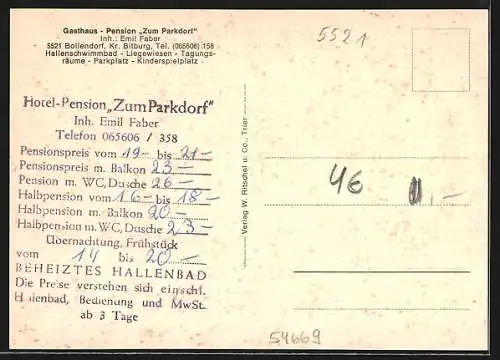 Gasthaus - Pension „Zum Parkdorf"
Inh.: Emil Faber
5521 Bollendorf, Kr. Bitburg, Tel. (065606) 158
Hallenschwimmbad - Liegewiesen - Tagungs-
räume - Parkplatz - Kinderspielplatz
Hotel-Pension „Zum Parkdorf"
Inh. Emil Faber
Telefon 065606 / 358
Pensionspreis vom 19- bis 21-
Pensionspreis m. Balkon 23-
Pension m. WC, Dusche 26-
Halbpension vom 16- bis 18-
Halbpension m. Balkon 20-
Halbpension m. WC, Dusche 23-
Übernachtung, Frühstück
vom 14 bis 20-
BEHEIZTES HALLENBAD
Die Preise verstehen sich einschl.
Hallenbad, Bedienung und MwSt.
ab 3 Tage
Verlag W. Ritschel u. Co., Trier
5521
46
54669